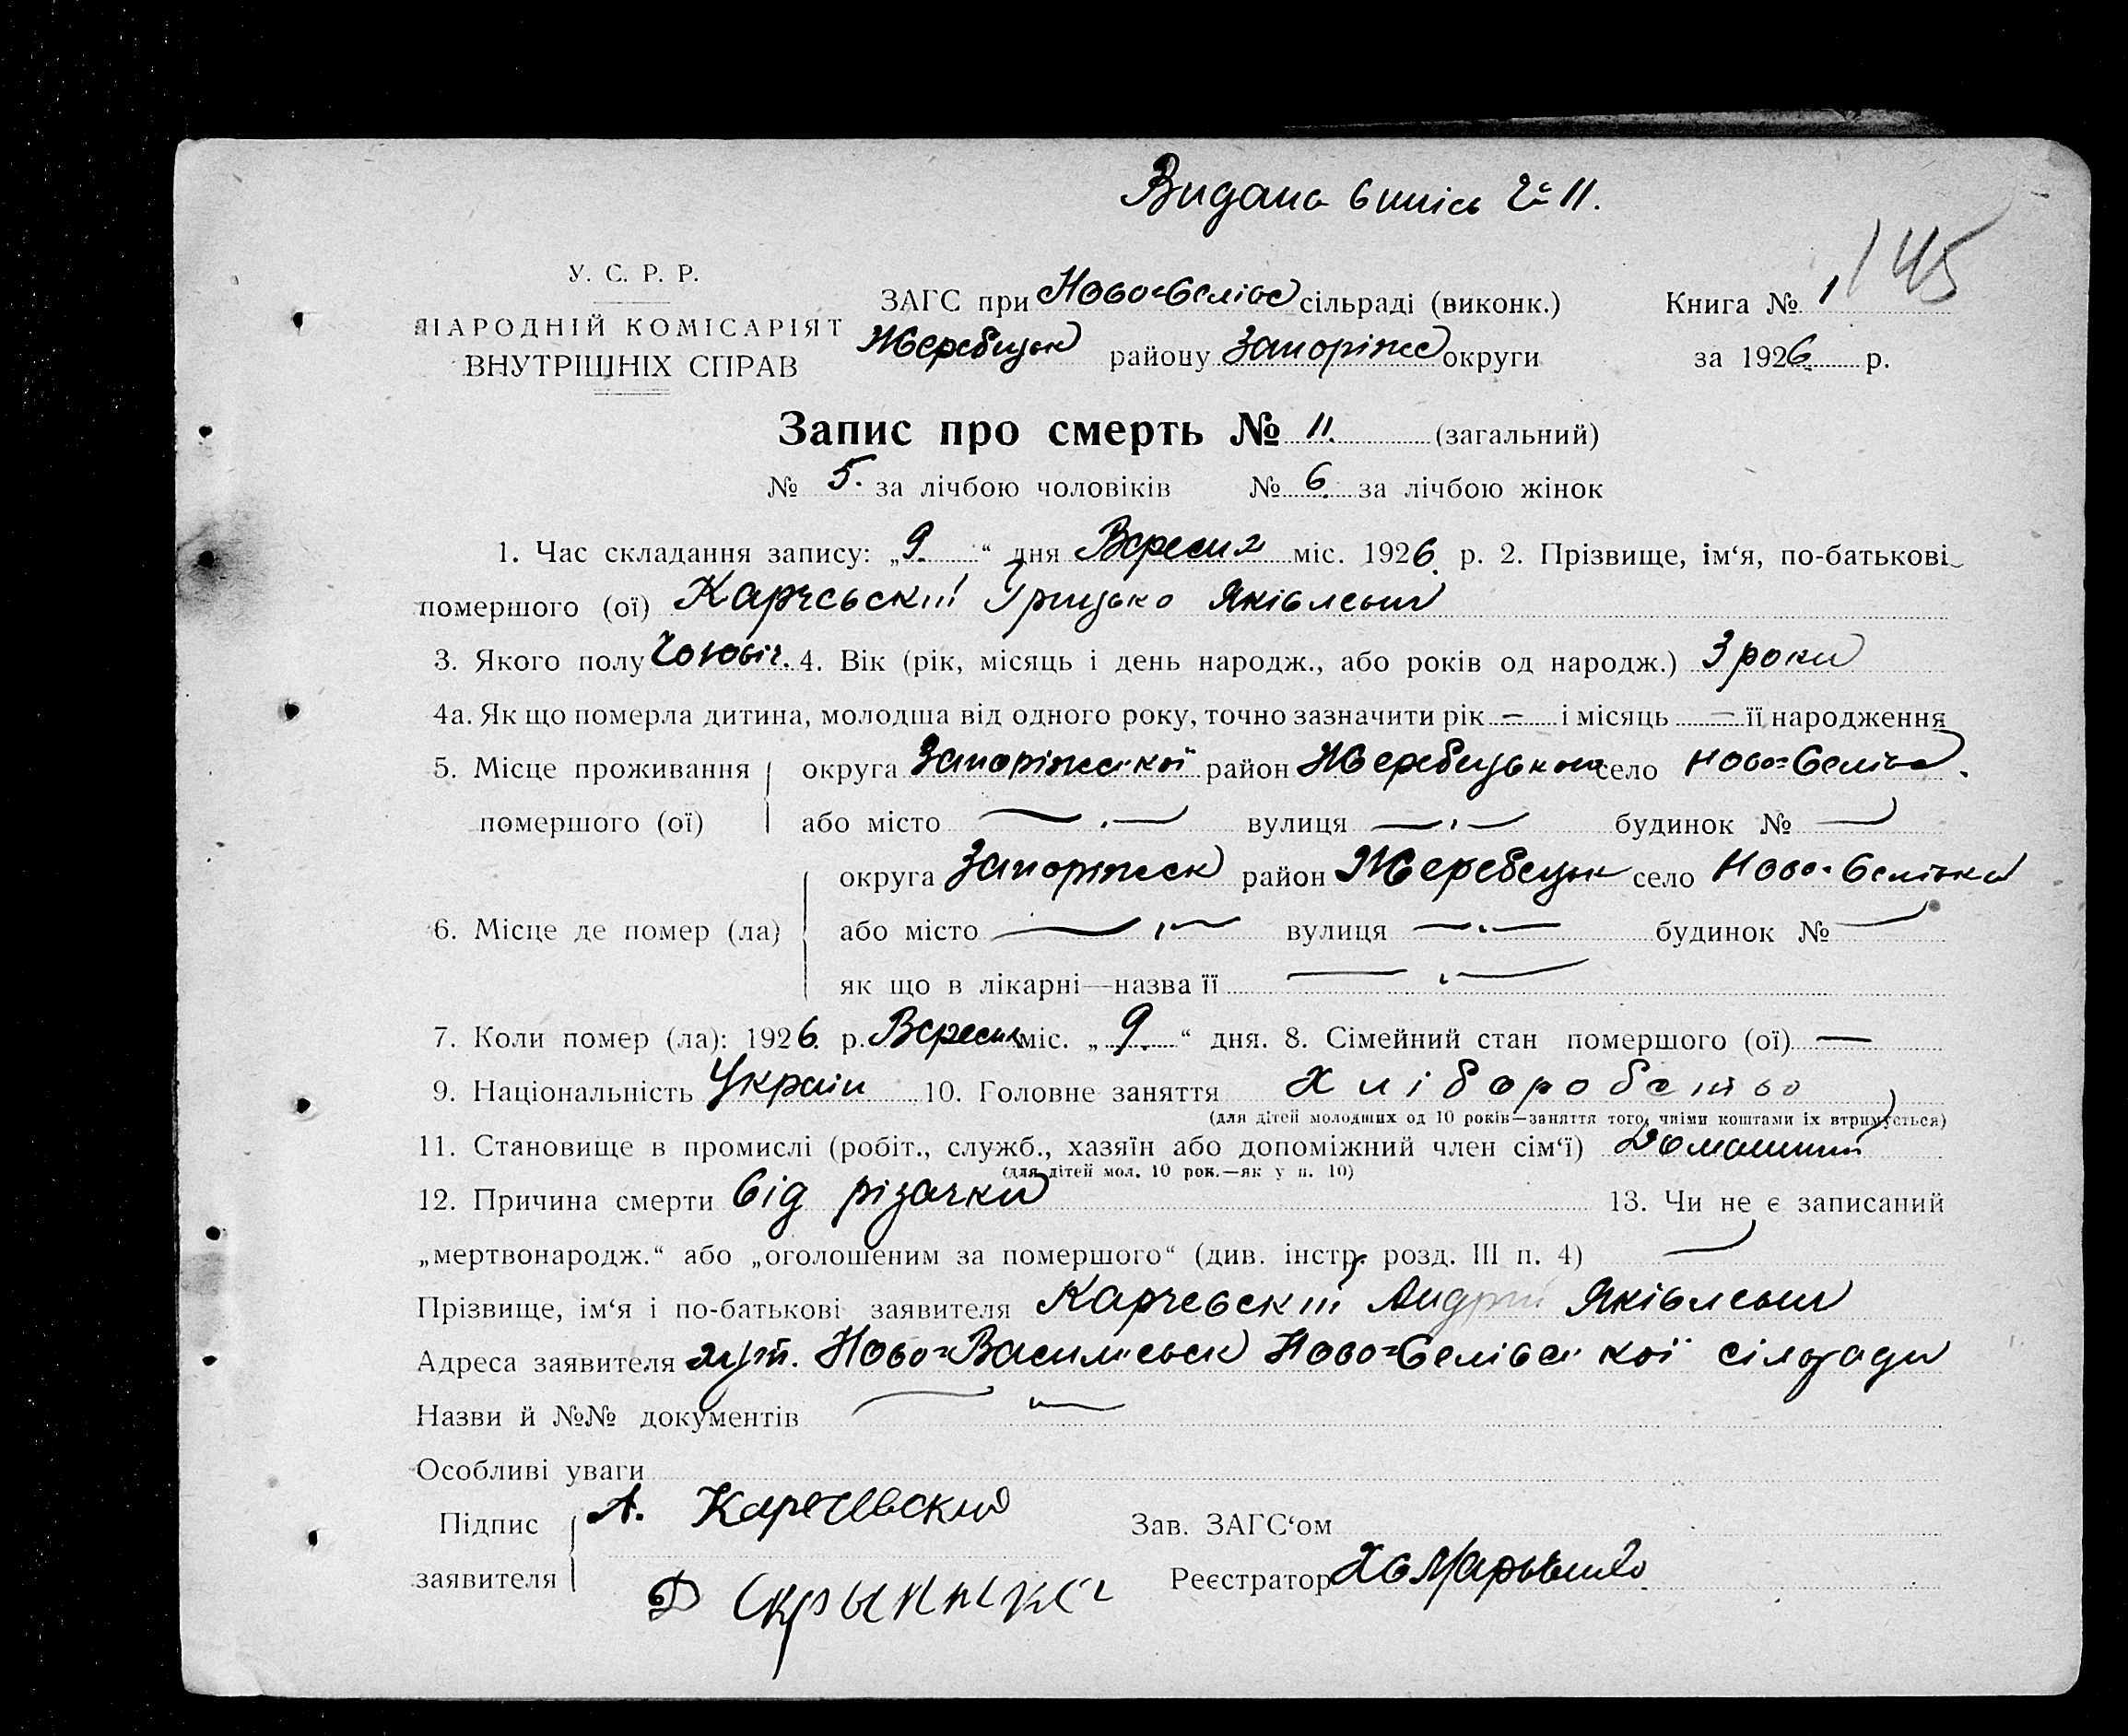 Видана впись № 11.
145
У. С. Р. Р.
НАРОДНІЙ КОМІСАРІЯТ
ВНУТРІШНІХ СПРАВ
ЗАГС при Ново-Селівс сільраді (виконк.)
Жеребецьк району Запоріж округи
Книга № 1
за 1926 р.
Запис про смерть № 11. (загальний)
№ 5. за лічбою чоловіків № 6. за лічбою жінок
1. Час складання запису: „9.“ дня Вересня міс. 1926. р. 2. Прізвище, ім‘я, по-батькові
помершого (ої) Карчевський Грицько Яківлевич
3. Якого полу Чоловіч. 4. Вік (рік, місяць і день народж., або років од народж.) 3 роки
4а. Як що померла дитина, молодша від одного року, точно зазначити рік — і місяць — її народження
5. Місце проживання округа Запоріжської район Жеребецького село Ново-Селівка.
помершого (ої) або місто — вулиця — будинок № —
округа Запоріжськ район Жеребецьк село Ново-Селівка
6. Місце де помер (ла) або місто — вулиця — будинок № —
як що в лікарні—назва її —
7. Коли помер (ла): 1926. р. Вересня міс. „9.“ дня. 8. Сімейний стан помершого (ої) —
9. Національність Україн 10. Головне заняття Хліборобство
(для дітей молодших од 10 років—заняття того, чиїми коштами їх втримується)
11. Становище в промислі (робіт., служб., хазяїн або допоміжний член сім‘ї) Домашний
(для дітей мол. 10 рок.—як у п. 10)
12. Причина смерти від різачки 13. Чи не є записаний
„мертвонародж.“ або „оголошеним за помершого“ (див. інстр. розд. III п. 4) —
Прізвище, ім‘я і по-батькові заявителя Карчевский Андрій Яківлевич
Адреса заявителя хут. Ново-Васильевськ Ново-Селівської сільради
Назви й №№ документів —
Особливі уваги
Підпис А. Каречевский Зав. ЗАГС‘ом
заявителя Реєстратор